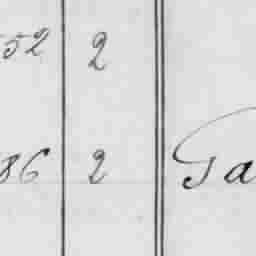 52 2
86 2 Ta